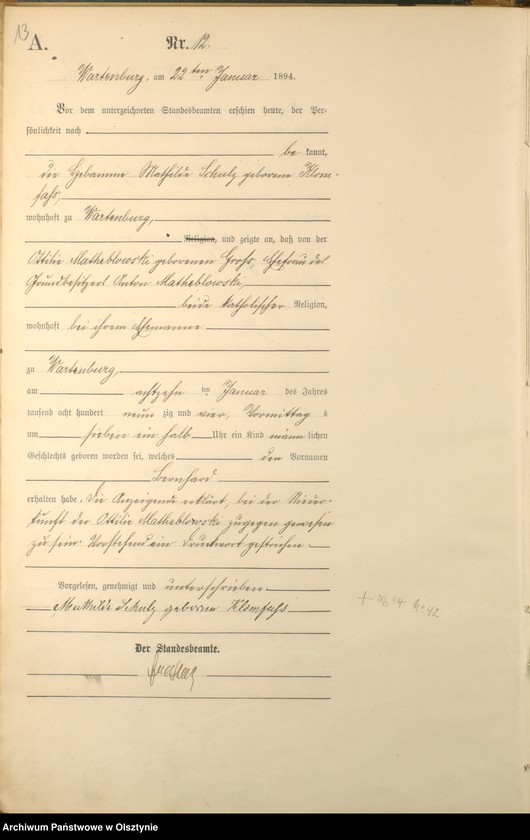 13
A.
Nr. 12.
Wartenburg, am 22ten Januar 1894.
Vor dem unterzeichneten Standesbeamten erschien heute, der Per-
sönlichkeit nach
be kannt,
die Hebamme Mathilde Schulz geborene Klom-
fass,
wohnhaft zu Wartenburg,
Religion, und zeigte an, daß von der
Ottilie Matheblowski geborenen Gross, Ehefrau des
Grundbesitzers Anton Matheblowski,
beide katholischer Religion,
wohnhaft bei ihrem Ehemanne
zu Wartenburg,
am achtzehn ten Januar des Jahres
tausend acht hundert neun zig und vier, Vormittag s
um sieben ein halb Uhr ein Kind männ lichen
Geschlechts geboren worden sei, welches den Vornamen
Bernhard
erhalten habe. Die Anzeigende erklärt, bei der Nieder-
kunft der Ottilie Matheblowski zugegen gewesen
zu sein. Vorstehend ein Druckwort gestrichen.
Vorgelesen, genehmigt und unterschrieben
Mathilde Schulz geboren Klomfass
Der Standesbeamte.
+ 94 No 42
Archiwum Państwowe w Olsztynie